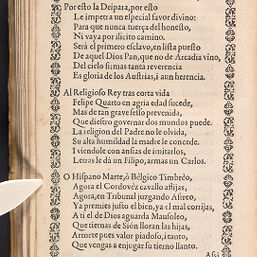 Por esto la Deipara, por esto
Le impetra un especial favor divino:
Para que nunca tuerça del honesto,
Ni vaya por ilicito camino.
Serà el primero esclavo, en lista puesto
De aquel Dios Pan, que no de Arcadia vino,
Del cielo si: mas tanta reverencia
Es gloria de los Austrias, i aun herencia.
Al Religioso Rey tras corta vida
Felipe Quarto en agria edad sucede,
Mas de tan grave seso prevenida,
Que diestro governar dos mundos puede.
La religion del Padre no le olvida,
Su alta humildad la madre le concede.
I viendole con ansias de imitarlos,
Letras le dà un Filipo, armas un Carlos.
O Hispano Marte, ò Belgico Timbrèo,
Agora el Cordovèz cavallo aflijas,
Agora, en Tribunal juzgando Astreo,
Ya premies justo el bien, ya el mal corrijas,
A ti el de Dios aguarda Mausoleo,
Que tiernas de Sion lloran las hijas,
Armete pues valor piadoso, i santo,
Que vengas a enjugar su tierno llanto.
Asi